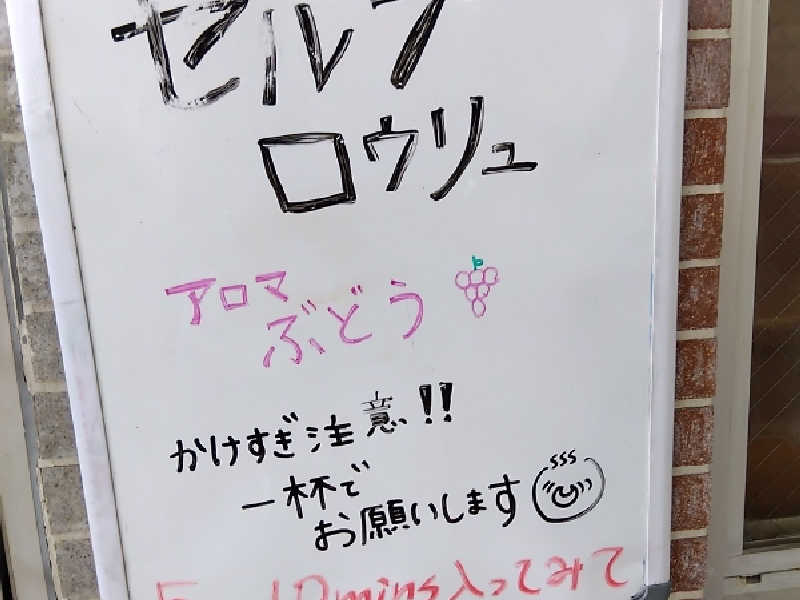 セルフ
ロウリュ
アロマ
ぶどう
かけすぎ注意!!
一杯で
お願いします
10mins入ってみて